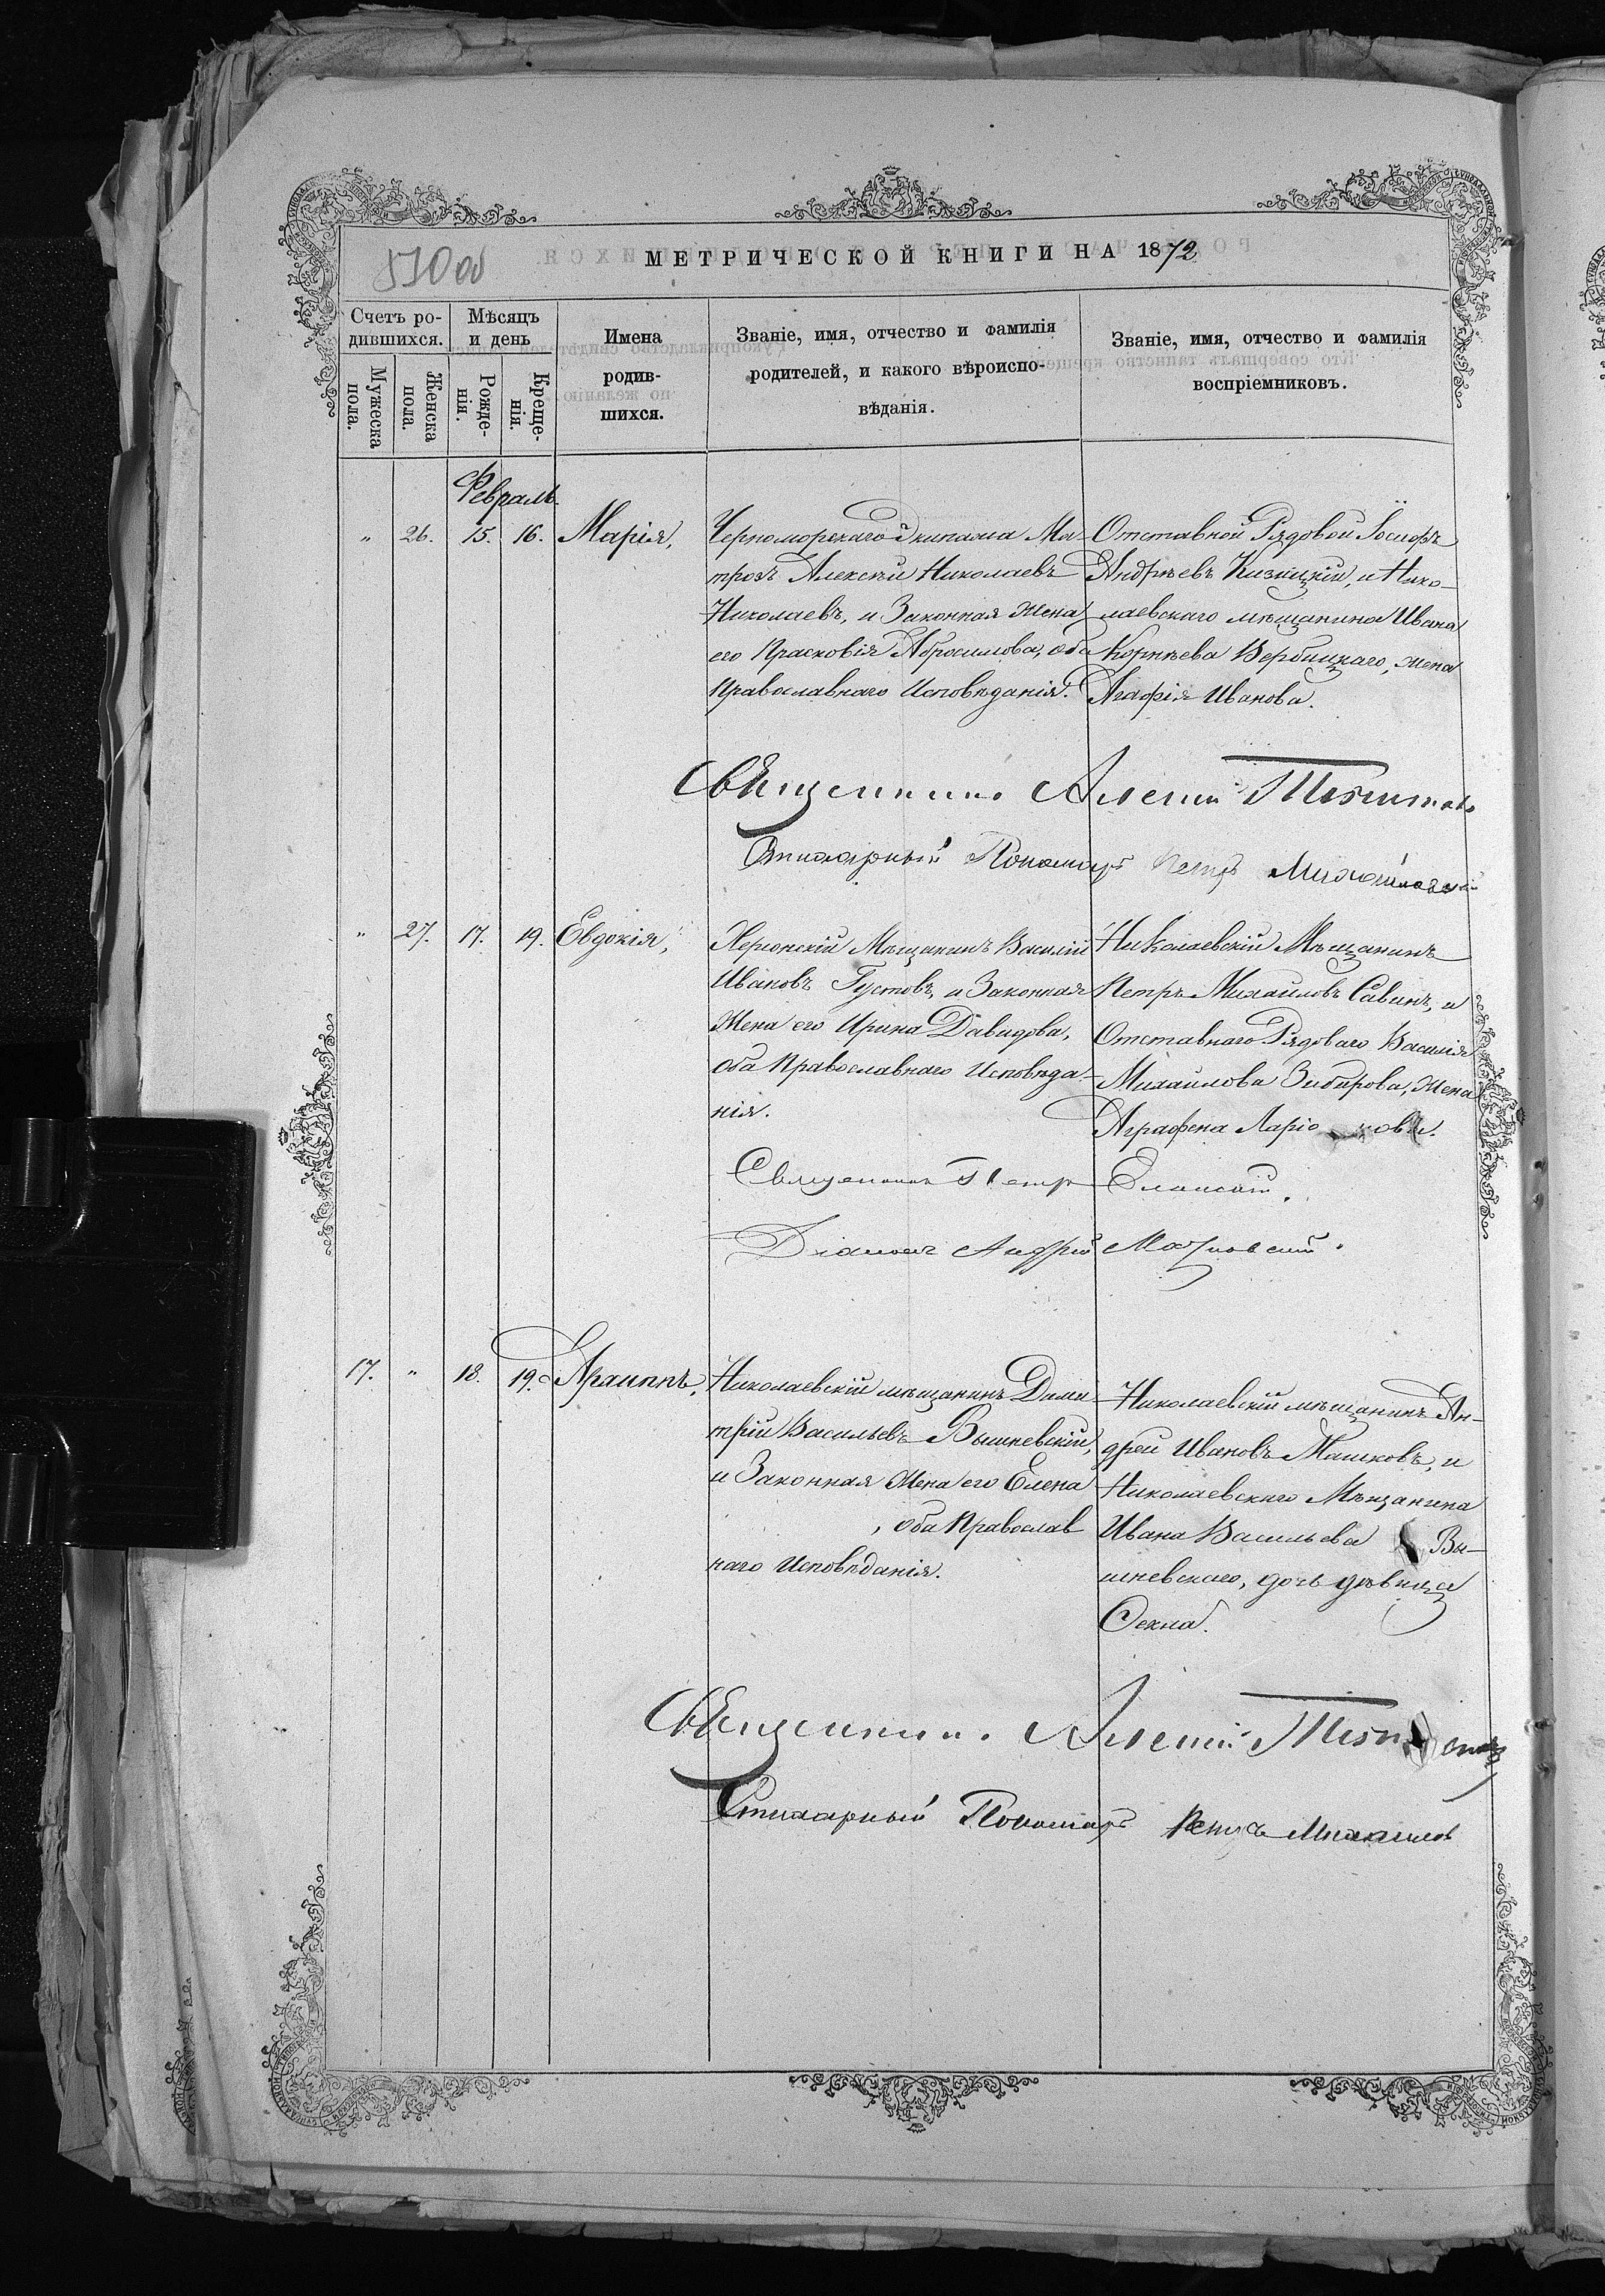 МЕТРИЧЕСКОЙ КНИГИ НА 1872
Счетъ ро-
дившихся.
Мѣсяцъ
и день
Мужеска
пола.
Женска
пола.
Рожде-
нія.
Креще-
нія.
Имена
родив-
шихся.
Званіе, имя, отчество и фамилія
родителей, и какого вѣроиспо-
вѣданія.
Званіе, имя, отчество и фамилія
воспріемниковъ.
Февраль
" 26. 15. 16. Марія,
Черноморскаго Экипажа Ма-
трозъ Алексѣй Николаевъ
Николаевъ, и Законная Жена
его Прасковія Абросимова, оба
Православнаго Исповѣданія.
Отставной Рядовой Іосифъ
Андрѣевъ Кизицкій, и Нико-
лаевскаго мѣщанина Ивана
Корнѣева Вербицкаго, жена
Агафія Иванова.
Священникъ Алексій
Стихарный Пономарь Петръ
" 27. 17. 19. Евдокія,
Херсонскій Мѣщанинъ Василій
Ивановъ Густовъ, и Законная
Жена его Ирина Давидова,
оба Православнаго Исповѣда-
нія.
Николаевскій Мѣщанинъ
Петръ Михайловъ Савинъ, и
Отставнаго Рядоваго Василія
Михайлова Зибирова, Жена
Аграфена Ларіо нова.
Священникъ Петръ Еланскій.
Діаконъ Андрей
17. " 18. 19. Архиппъ,
Николаевскій мѣщанинъ Дими-
трій Васильевъ Вышневскій,
и Законная Жена его Елена
, оба Православ
наго Исповѣданія.
Николаевскій мѣщанинъ Ан-
дрей Ивановъ Машковъ, и
Николаевскаго Мѣщанина
Ивана Васильева Вы-
шневскаго, дочь дѣвица
Фекла.
Священникъ Алексій
Стихарный Пономарь Петръ Михайлов